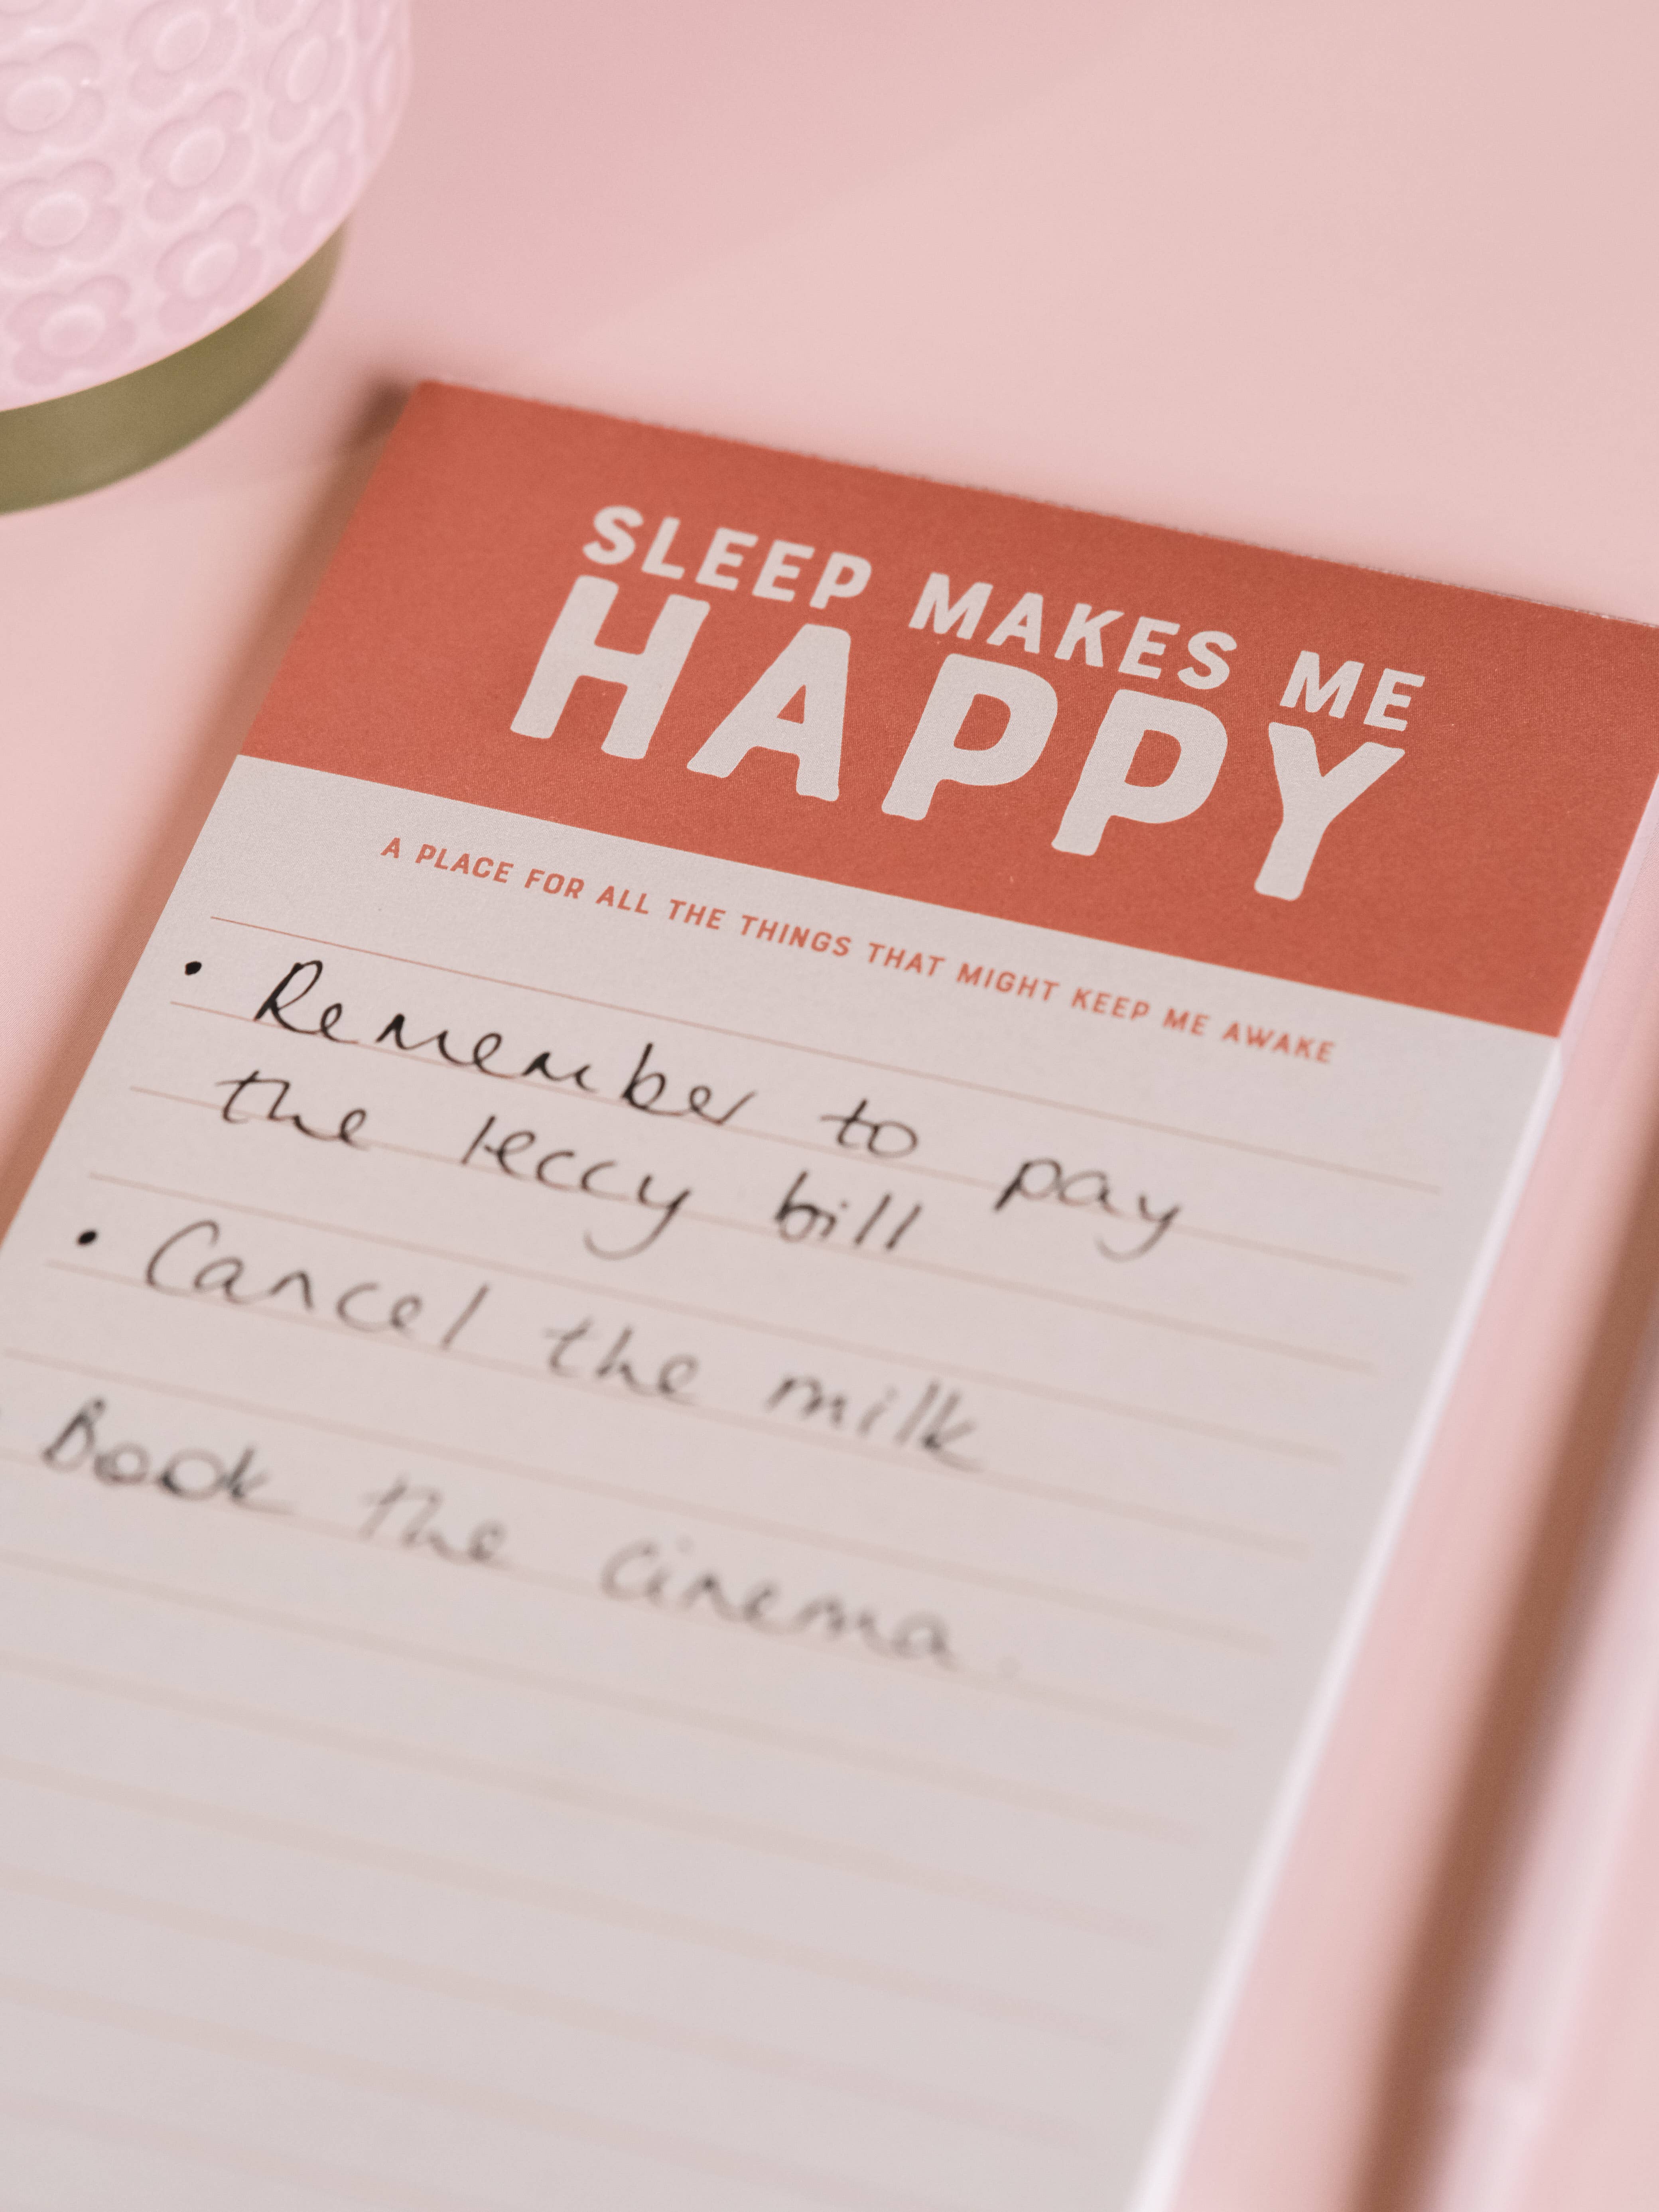 SLEEP MAKES ME
HAPPY
A PLACE FOR ALL THE THINGS THAT MIGHT KEEP ME AWAKE
• Remember to pay
the leccy bill
• Cancel the milk
Book the cinema.